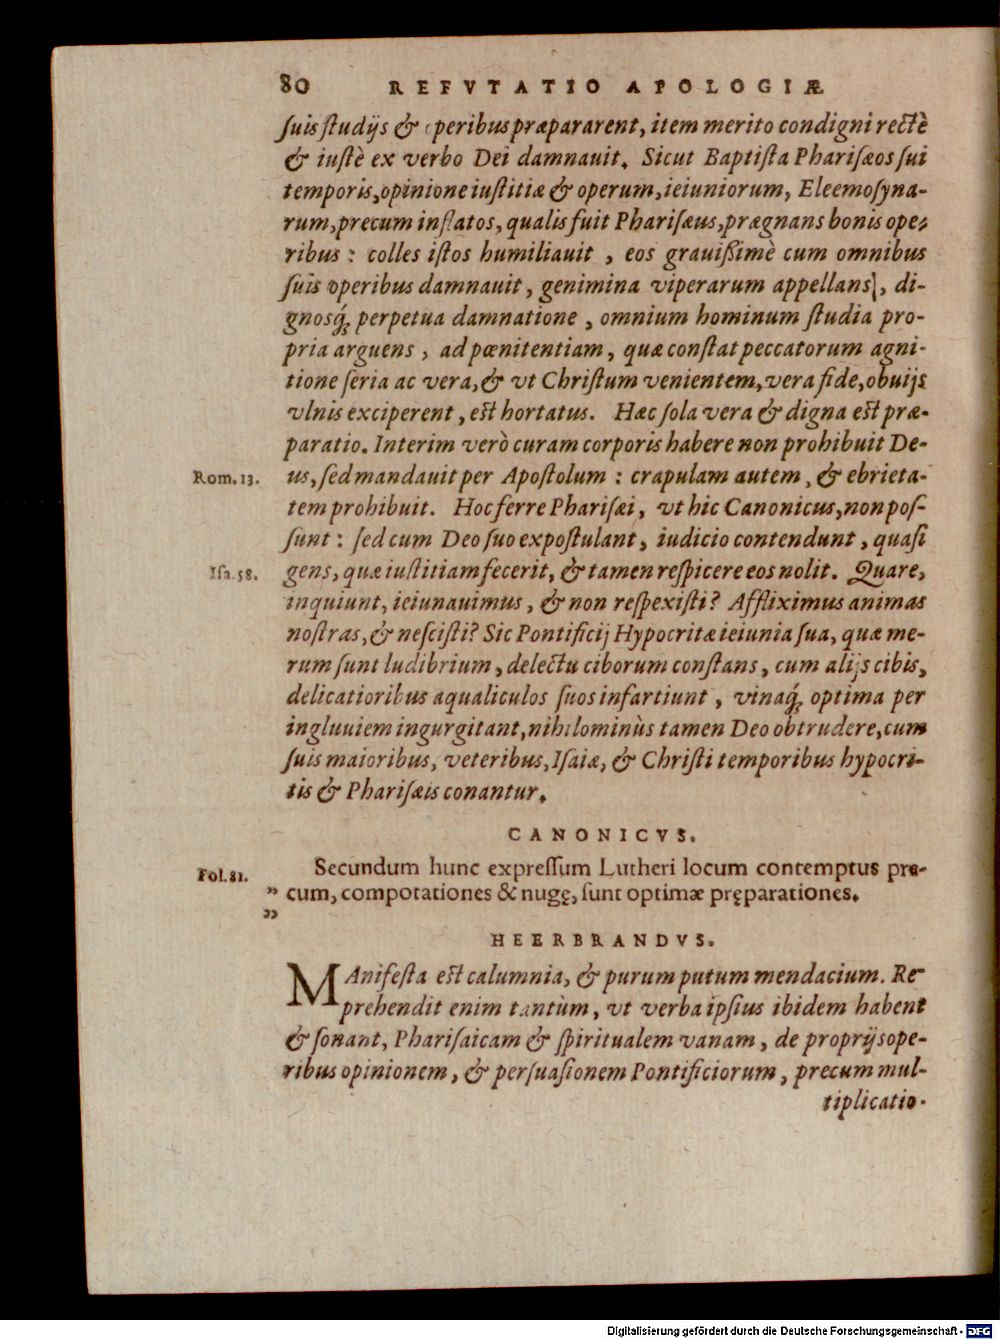 80 REFVTATIO APOLOGIÆ
ſuis ſtudijs & operibus præpararent, item merito condigni rectè
& iuſtè ex verbo Dei damnauit. Sicut Baptiſta Phariſæos ſui
temporis, opinione iuſtitiæ & operum, ieiuniorum, Eleemoſyna-
rum, precum inflatos, qualis fuit Phariſæus, prægnans bonis ope-
ribus : colles iſtos humiliauit , eos grauißimè cum omnibus
ſuis operibus damnauit, genimina viperarum appellans, di-
gnosq́ꝫ perpetua damnatione , omnium hominum ſtudia pro-
pria arguens , ad pœnitentiam, quæ conſtat peccatorum agni-
tione ſeria ac vera, & vt Chriſtum venientem, vera fide, obuijs
vlnis exciperent, eſt hortatus. Hæc ſola vera & digna eſt præ-
paratio. Interim verò curam corporis habere non prohibuit De-
Rom. 13. us, ſed mandauit per Apoſtolum : crapulam autem, & ebrieta-
tem prohibuit. Hoc ferre Phariſæi, vt hic Canonicus, non poſ-
ſunt : ſed cum Deo ſuo expoſtulant, iudicio contendunt, quaſi
Iſa. 58. gens, quæ iuſtitiam fecerit, & tamen reſpicere eos nolit. Quare,
inquiunt, ieiunauimus, & non reſpexiſti? Afflximus animas
noſtras, & neſciſti? Sic Pontificij Hypocritæ ieiunia ſua, quæ me-
rum ſunt ludibrium, delectu ciborum conſtans, cum alijs cibis,
delicatioribus aqualiculos ſuos infartiunt , vinaq́ꝫ optima per
ingluuiem ingurgitant, nihilominùs tamen Deo obtrudere, cum
ſuis maioribus, veteribus, Iſaiæ, & Chriſti temporibus hypocri-
tis & Phariſæis conantur.
CANONICVS.
Fol. 81. Secundum hunc expreſſum Lutheri locum contemptus pre-
„ cum, compotationes & nugę, ſunt optimæ pręparationes.
„
HEERBRANDVS.
MAnifeſta eſt calumnia, & purum putum mendacium. Re-
prehendit enim tantùm, vt verba ipſius ibidem habent
& ſonant, Phariſaicam & ſpiritualem vanam, de proprijs ope-
ribus opinionem, & perſuaſionem Pontificiorum, precum mul-
tiplicatio-
Digitalisierung gefördert durch die Deutsche Forschungsgemeinschaft - DFG